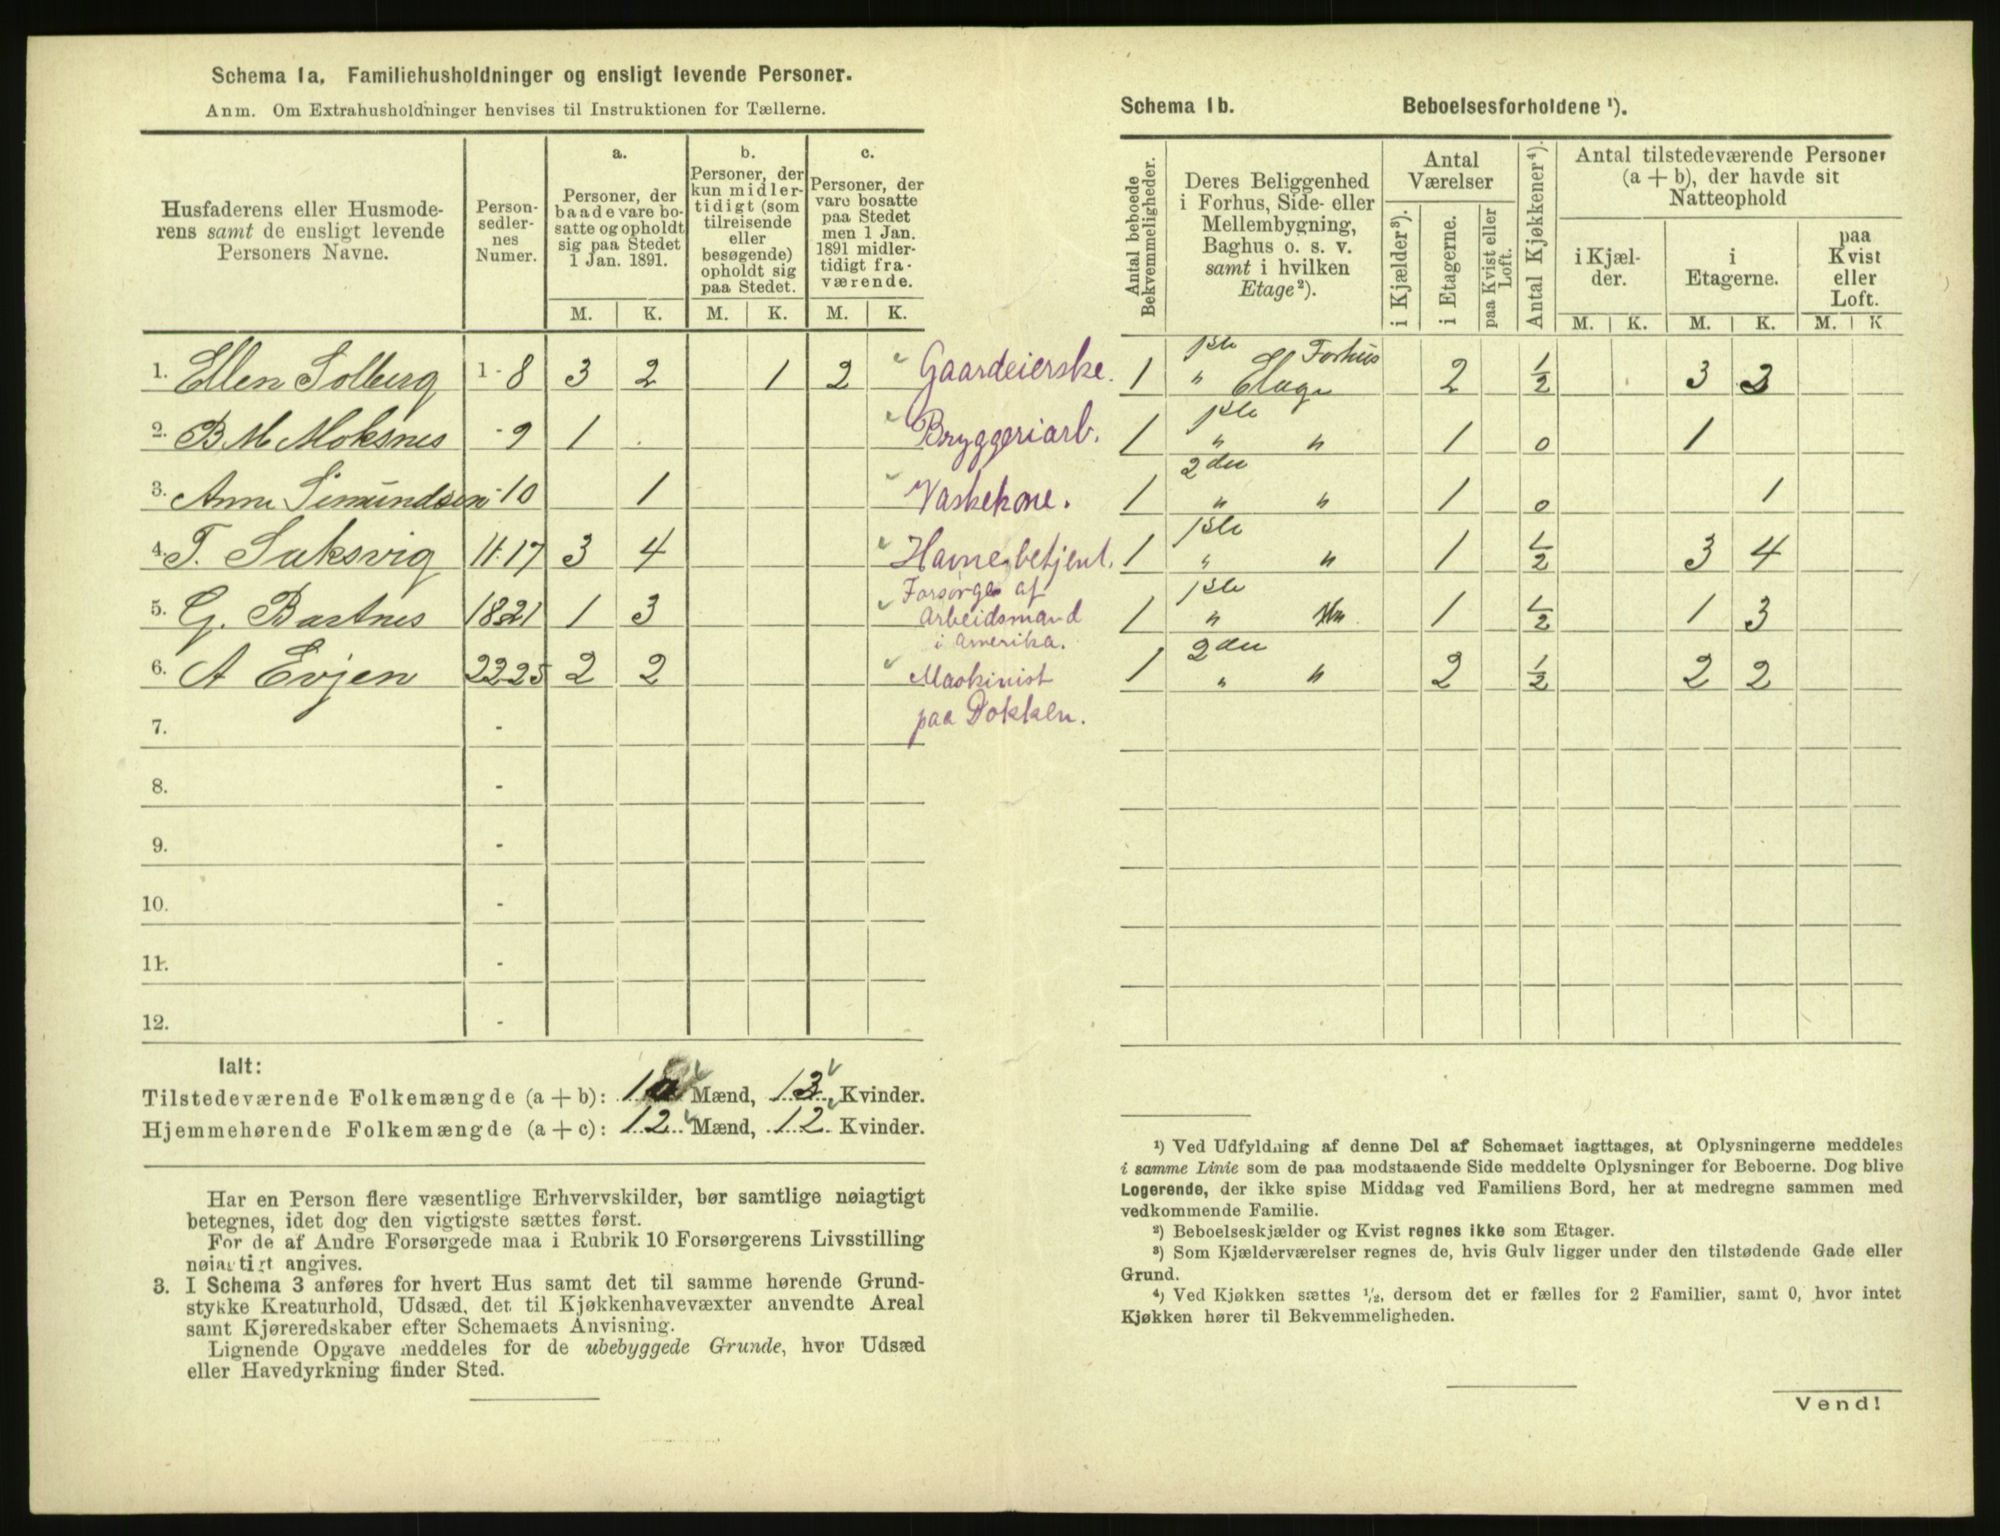 Schema 1a. Familiehusholdninger og ensligt levende Personer.
Anm. Om Extrahusholdninger henvises til Instruktionen for Tællerne.
Husfaderens eller Husmode-
rens samt de ensligt levende
Personers Navne.
Person-
sedler-
nes
Numer.
a.
Personer, der
baade vare bo-
satte og opholdt
sig paa Stedet
1 Jan. 1891.
b.
Personer, der
kun midler-
tidigt (som
tilreisende
eller
besøgende)
opholdt sig
paa Stedet.
c.
Personer, der
vare bosatte
paa Stedet
men 1 Jan.
1891 midler-
tidigt fra-
værende.
M. K. M. K. M. K.
1. Ellen Solberg 1-8 3 2 1 2 Gaardeierske.
2. B M Moksnes -9 1 Bryggeriarb.
3. Anne Simundsen -10 1 Vaskekone.
4. T. Saksvig 11-17 3 4 Havnebetjent.
5. G. Bastnes 18-21 1 3 Forsørges af
Arbeidsmand
i Amerika.
6. A Evjen 22-25 2 2 Maskinist
paa Dokken.
7. -
8. -
9. -
10. -
11. -
12. -
Ialt:
Tilstedeværende Folkemængde (a + b): Mænd, 13 Kvinder.
Hjemmehørende Folkemængde (a + c): 12 Mænd, 12 Kvinder.
Har en Person flere væsentlige Erhvervskilder, bør samtlige nøiagtigt
betegnes, idet dog den vigtigste sættes først.
For de af Andre Forsørgede maa i Rubrik 10 Forsørgerens Livsstilling
nøiagtigt angives.
3. I Schema 3 anføres for hvert Hus samt det til samme hørende Grund-
stykke Kreaturhold, Udsæd, det til Kjøkkenhavevæxter anvendte Areal
samt Kjøreredskaber efter Schemaets Anvisning.
Lignende Opgave meddeles for de ubebyggede Grunde, hvor Udsæd
eller Havedyrkning finder Sted.
Schema 1b. Beboelsesforholdene ¹).
Antal beboede
Bekvemmeligheder.
Deres Beliggenhed
i Forhus, Side- eller
Mellembygning,
Baghus o. s. v.
samt i hvilken
Etage²).
Antal
Værelser
i Kjælder³).
i Etagerne.
paa Kvist eller
Loft.
Antal Kjøkkener⁴).
Antal tilstedeværende Personer
(a + b), der havde sit
Natteophold
i Kjæl-
der.
i
Etagerne.
paa
Kvist
eller
Loft.
M. K. M. K. M. K
1 1ste Forhus
" Etage 2 ½ 3 3
1 1ste " " 1 0 1
1 2den " " 1 0 1
1 1ste " " 1 ½ 3 4
1 1ste " 1 ½ 1 3
1 2den " " 2 ½ 2 2
¹) Ved Udfyldning af denne Del af Schemaet iagttages, at Oplysningerne meddeles
i samme Linie som de paa modstaaende Side meddelte Oplysninger for Beboerne. Dog blive
Logerende, der ikke spise Middag ved Familiens Bord, her at medregne sammen med
vedkommende Familie.
²) Beboelseskjælder og Kvist regnes ikke som Etager.
³) Som Kjælderværelser regnes de, hvis Gulv ligger under den tilstødende Gade eller
Grund.
⁴) Ved Kjøkken sættes ½, dersom det er fælles for 2 Familier, samt 0, hvor intet
Kjøkken hører til Bekvemmeligheden.
Vend!